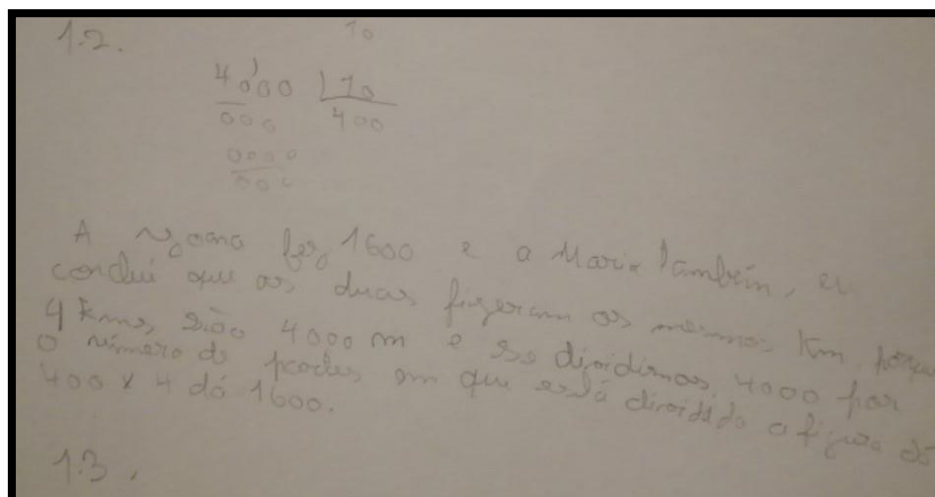 1.2.
10
4000 | 10
000 400
0000
000
A Joana fez 1600 e a Maria também, eu
conclui que as duas fizeram os mesmos Km porque
4 kms, são 4000 m e se dividirmos 4000 por
o número de partes em que está dividida a figura dá
400 x 4 dá 1600.
1.3.